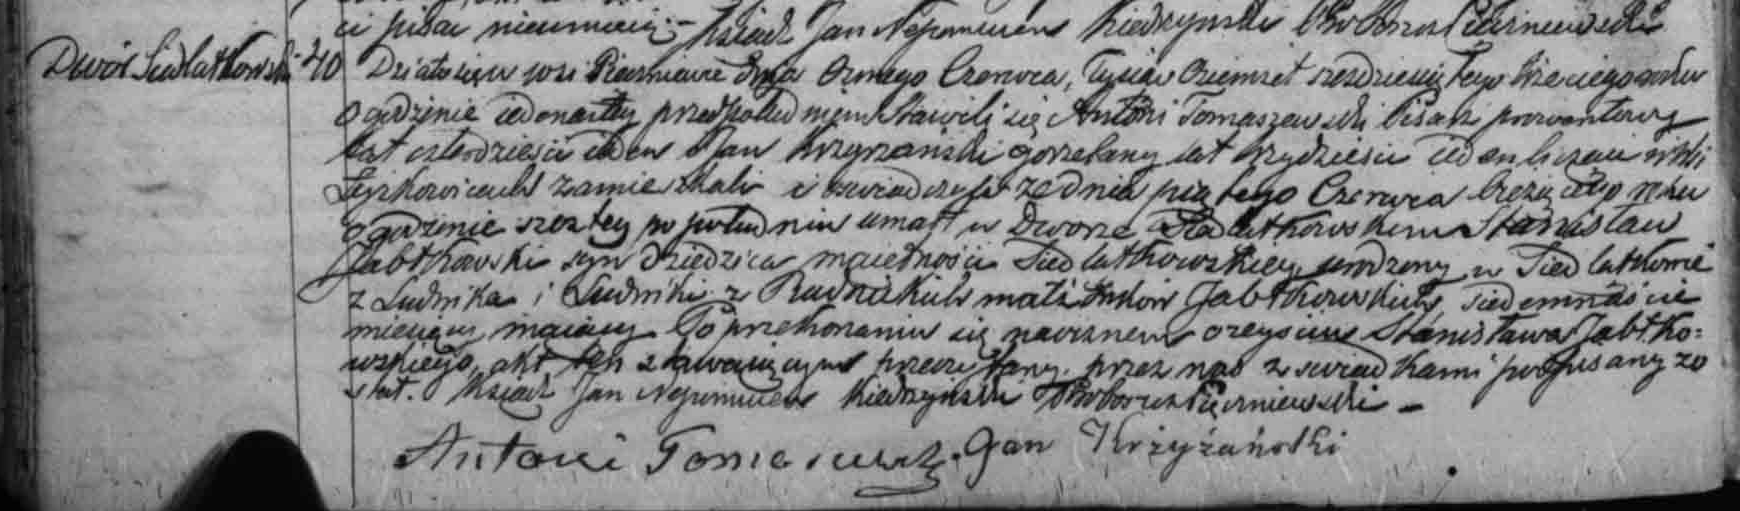 ci pisać nieumieią. – Ksiądz Jan Nepomucen Kiedrzyński Proboszcz Pięrniewski
Dwór Siedlatkowski 40 Działo się w wsi Pięrniewie dnia Osmego Czerwca, Tysiąc Ośmset sześćdziesiątego trzeciego roku
o godzinie iedenastey przed południem Stawili się Antoni Tomaszewski Pisarz prowentowy
lat czterdzieści ieden i Jan Krzyżański gorzelany lat trzydzieści ieden liczący w Wsi
zamieszkali i oświadczyli że dnia piątego Czerwca bieżącego roku
o godzinie szóstey po południu umarł w Dworze Siedlatkowskim Stanisław
Jabłkowski syn dziedzica maiętności Siedlatkowskiey, urodzony w Siedlatkowie
z Ludwika i Ludwiki z Rudnickich małżonków Jabłkowskich, siedemnaście
miesięcy maiący. Po przekonaniu się naocznem o zeyściu Stanisława Jabłko=
wskiego, akt ten stawaiącym przeczytany, przez nas z świadkami podpisany zo
stał. Ksiądz Jan Nepomucen Kiedrzyński Proboszcz Pięrniewski –
Antoni Tomaszewski. Jan Krzyżański